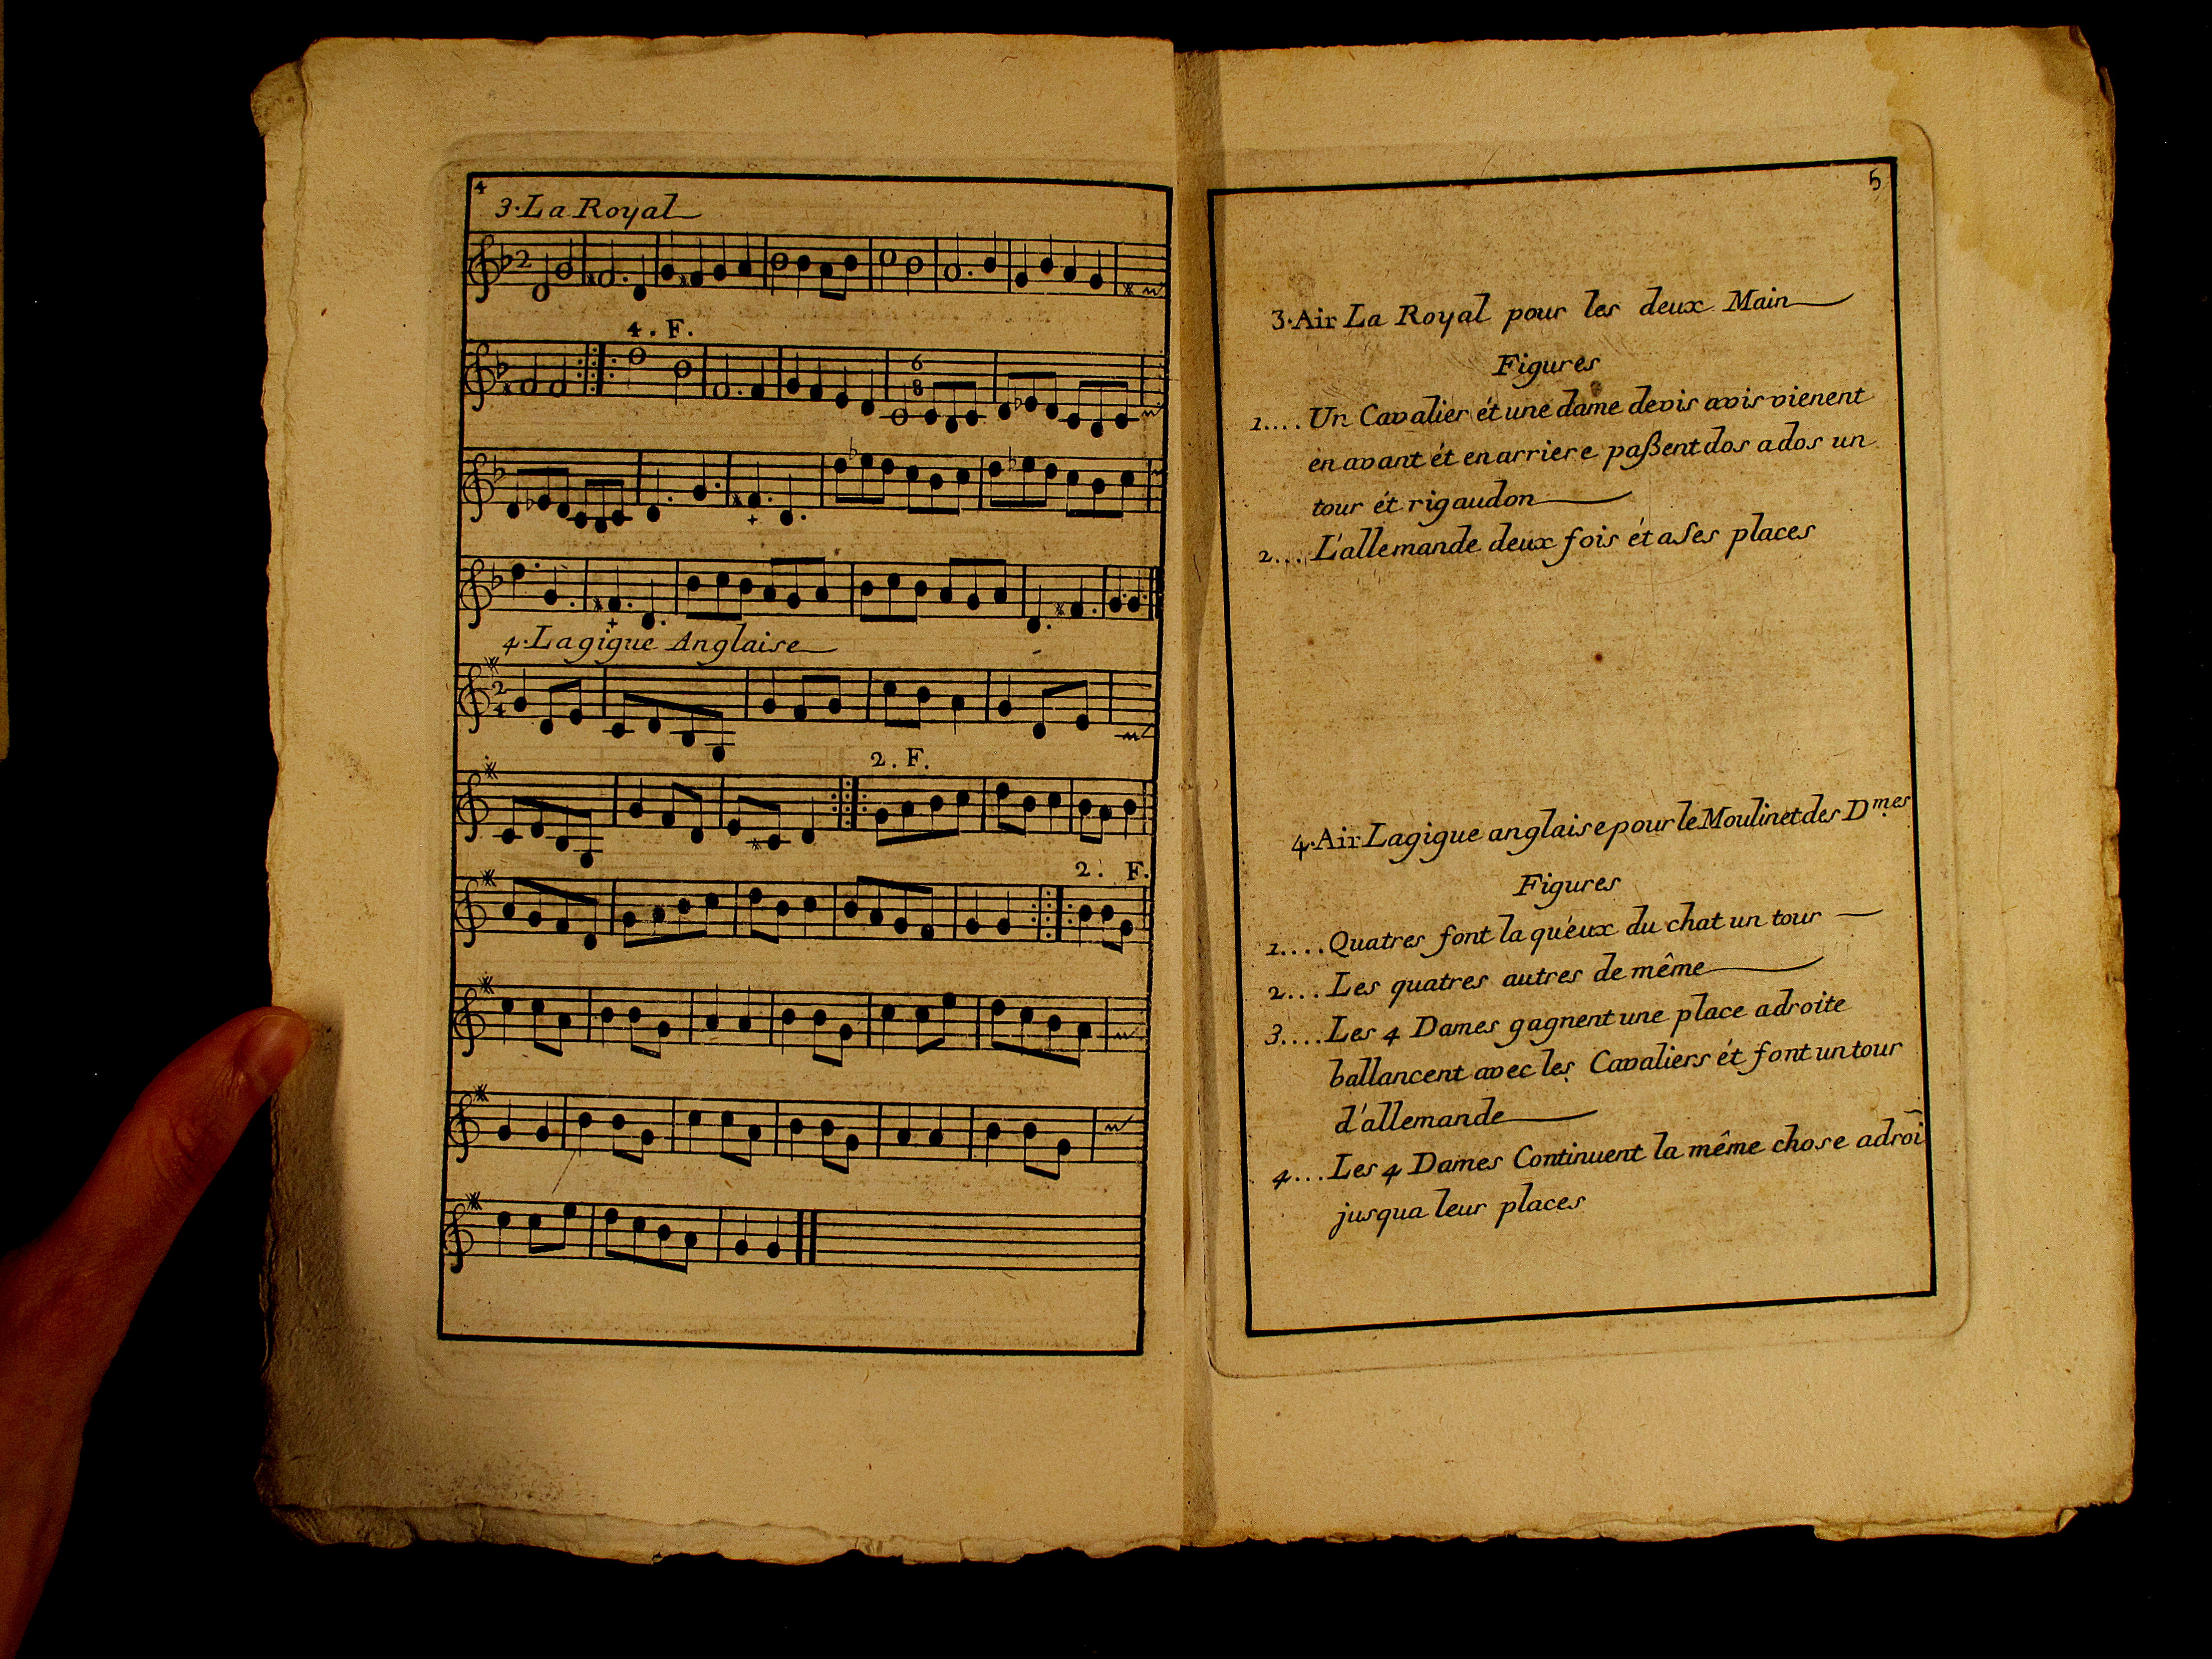 4
3·La Royal
2
4. F.
6
8
4·Lagigue Anglaise
2
4
2. F.
2. F.
5
3·Air La Royal pour les deux Main
Figures
1.... Un Cavalier ét une dame devis avis vienent
en avant ét en arriere paßent dos a dos un
tour ét rigaudon
2... L'allemande deux fois ét a Ses places
4·Air Lagigue anglaise pour le Moulinet des D.mes
Figures
1.... Quatres font la quéux du chat un tour
2... Les quatres autres de même
3.... Les 4 Dames gagnent une place adroite
ballancent avec les Cavaliers ét font un tour
d'allemande
4... Les 4 Dames Continuent la même chose adroi
jusqua leur places